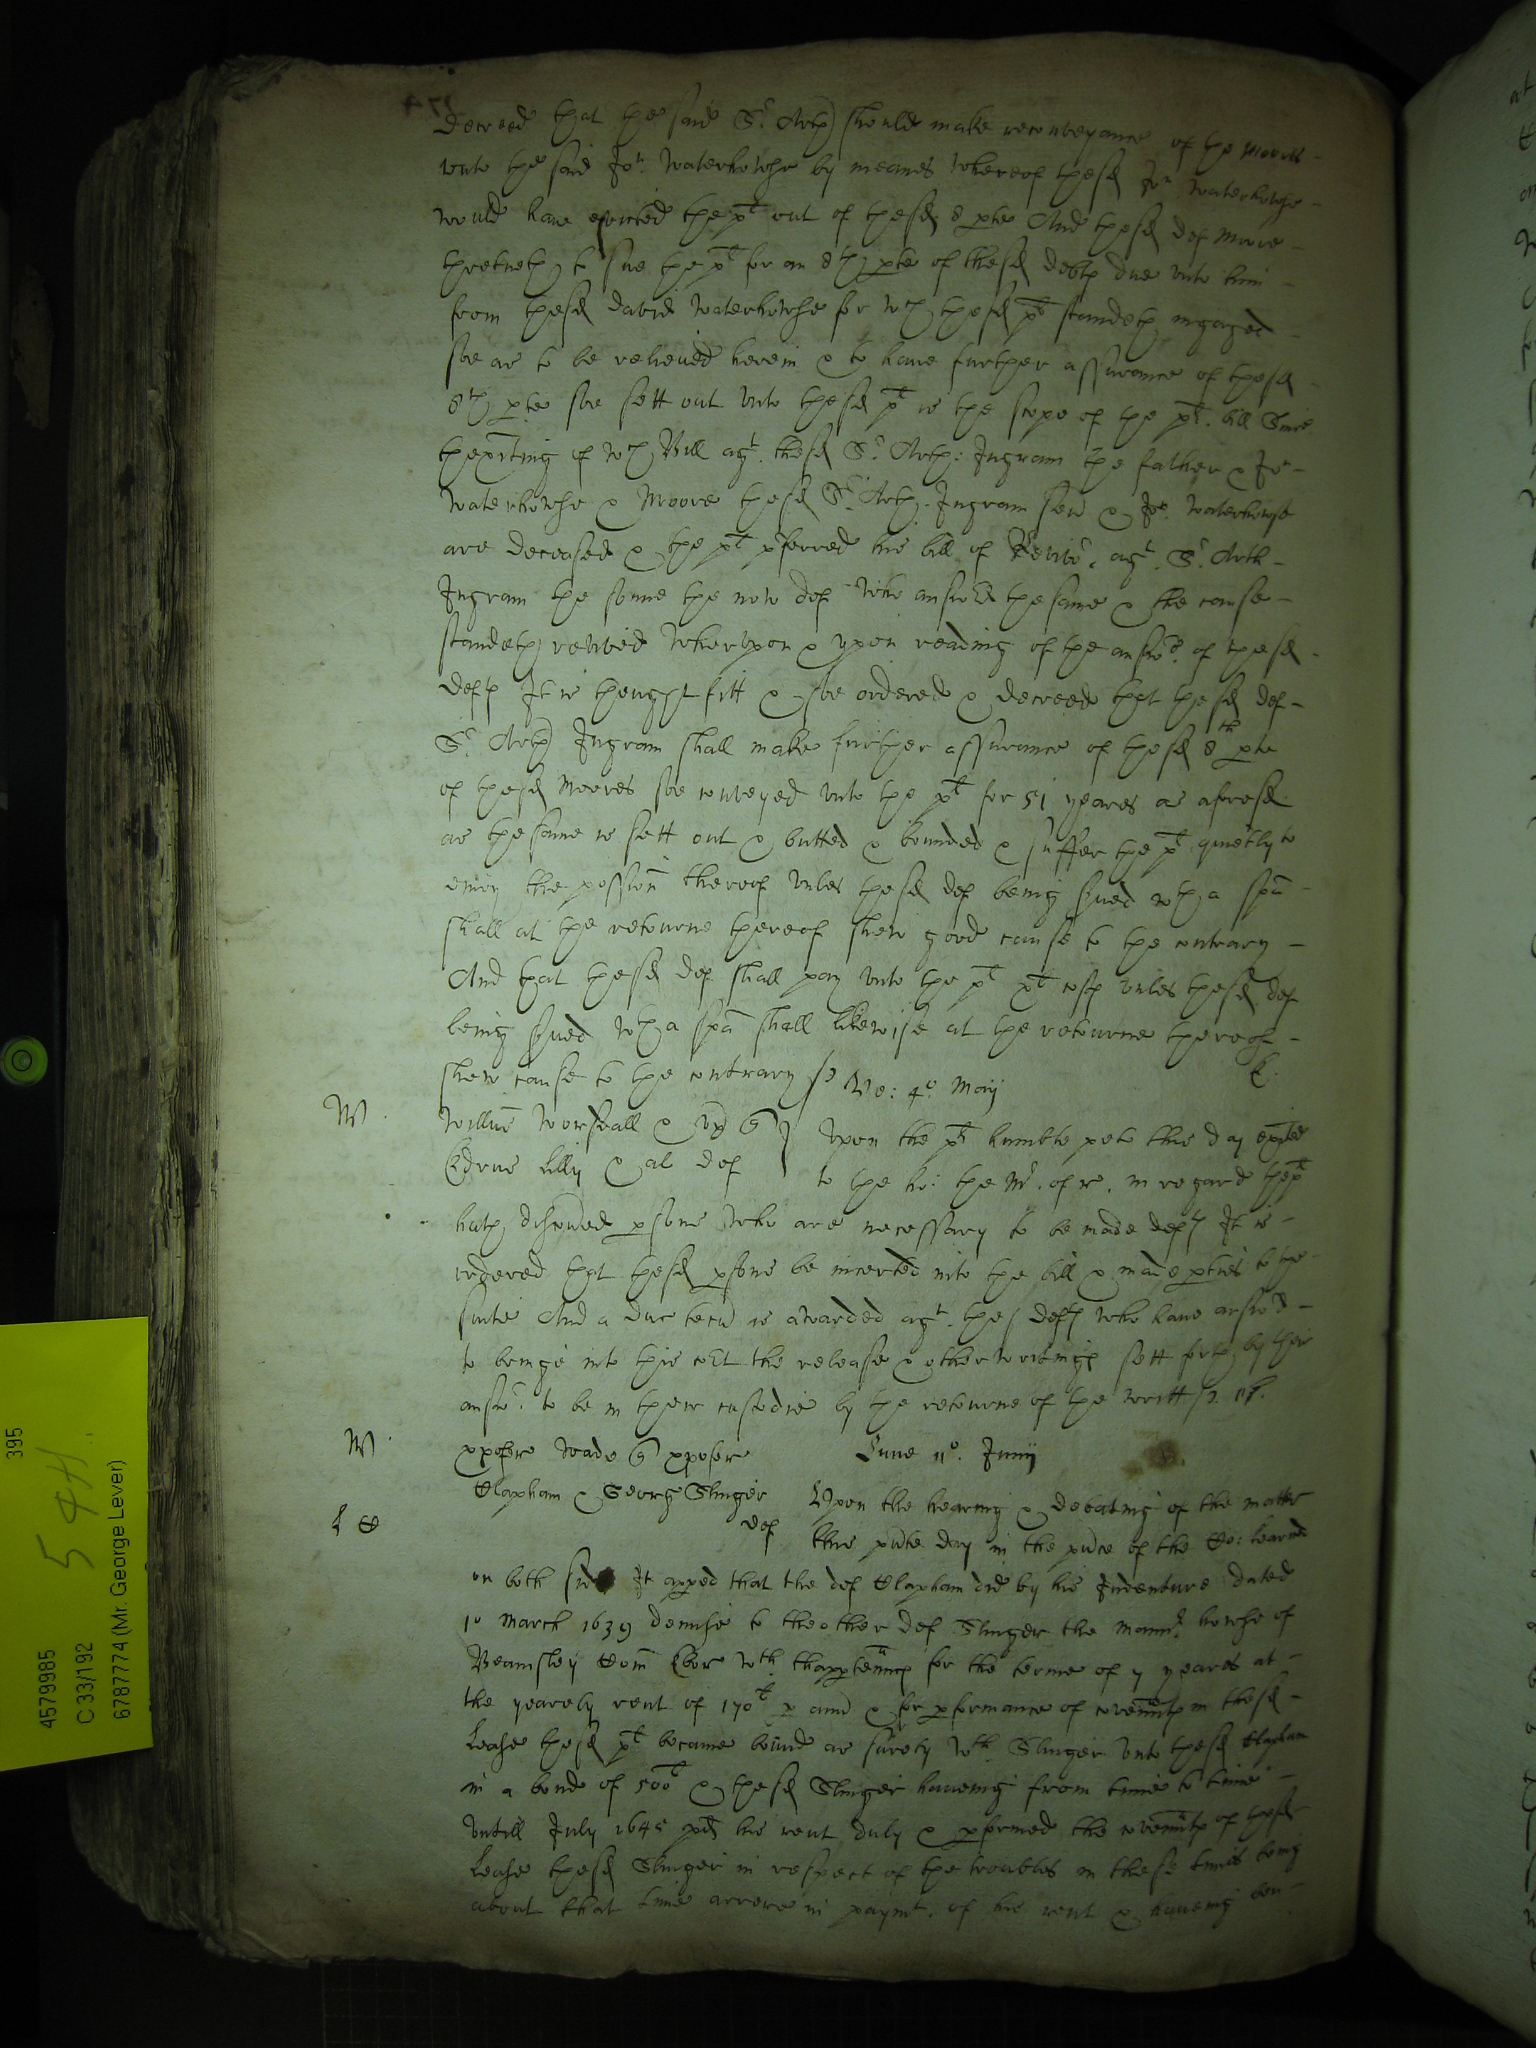 decreed that the said Sr. Arth: should make reconveyance of the Moores
unto the said Jon. Waterhowse by meanes whereof the sd Jon Waterhowse
would have evicted the plt out of the sd 8 pte And the sd def Moore
threatneth to sue the plt for an 8th pte of the sd debts due unto him
from the sd David Waterhowse for wch the sd plt standeth ingaged
soe as to be relieved herein & to have further assurance of the sd
8th pte soe sett out unto the sd plt is the scope of the plts bill Since
thexiting of wch Bill agt. the sd Sr. Arth: Ingram the father & Jon
Waterhowse & Moore the sd Sr. Arth. Ingram sen & Jon. Waterhowse
are deceased & the plt pferred his bill of Revivr. agt. Sr. Arth
Ingram the sonne the now def who answd the same & the cause
standeth revived Wherupon & upon reading of the answrs. of the sd
defts It is thought fitt & soe ordered & decreed that the sd def
Sr. Arth Ingram shall make further assurance of the sd 8th pte
of the sd Moores soe conveyed unto the plt for 51 yeares as aforesd
as the same is sett out & butted & bounded & suffer the plt quietly to
enioy the possion thereof unles the sd def being served wth a spa
shall at the retourne thereof shew good cause to the contrary
And that the sd def shall pay unto the plt costs unles the sd def
being served wth a spa shall likewise at the retourne thereof
shew cause to the contrary
Ve: 4o Maij
W
Willm Worseall & ux
Edrus Lilly & al def
Upon the plts humble peto this day exited
to the ho: the Mr. of r. in regard the plt
hath discovered psons who are necessary to be made defts It is
ordered that the sd psons be incerted into the bill & made pties to the
suite And a duc tecu is awarded agt. the defts who have answd
to bringe into this cort the release & other writings sett forth by their
answr. to be in their custodie by the retourne of the writt
W
Xpofer Wade Xpofer
Clapham & Georg Slinger
def
Lune 11o. Junij
L C
Upon the hearing & debating of the matter
this psente day in the psnce of the Co: learned
on both sides It apped that the def Clapham did by his Indenture dated
1o March 1639 demise to the other def Slinger the mannr howse of
Beamsley Com Ebor wth thapptenncs for the terme of 7 yeares at
the yearely rent of 170l p ann & for pformance of covennts in the sd
Lease the sd plt became bound as surety wth Slinger unto the sd Clapham
in a bond of 500l & the sd Slinger haveing from time to time
untill July 1645 pd his rent duly & pformed the covennts of the sd
Lease the sd Slinger in respect of the troubles in these times being
about that time arrere in paymt. of his rent & haveing ben
395
54H
4579985
C 33/192
6787774 (Mr. George Lever)